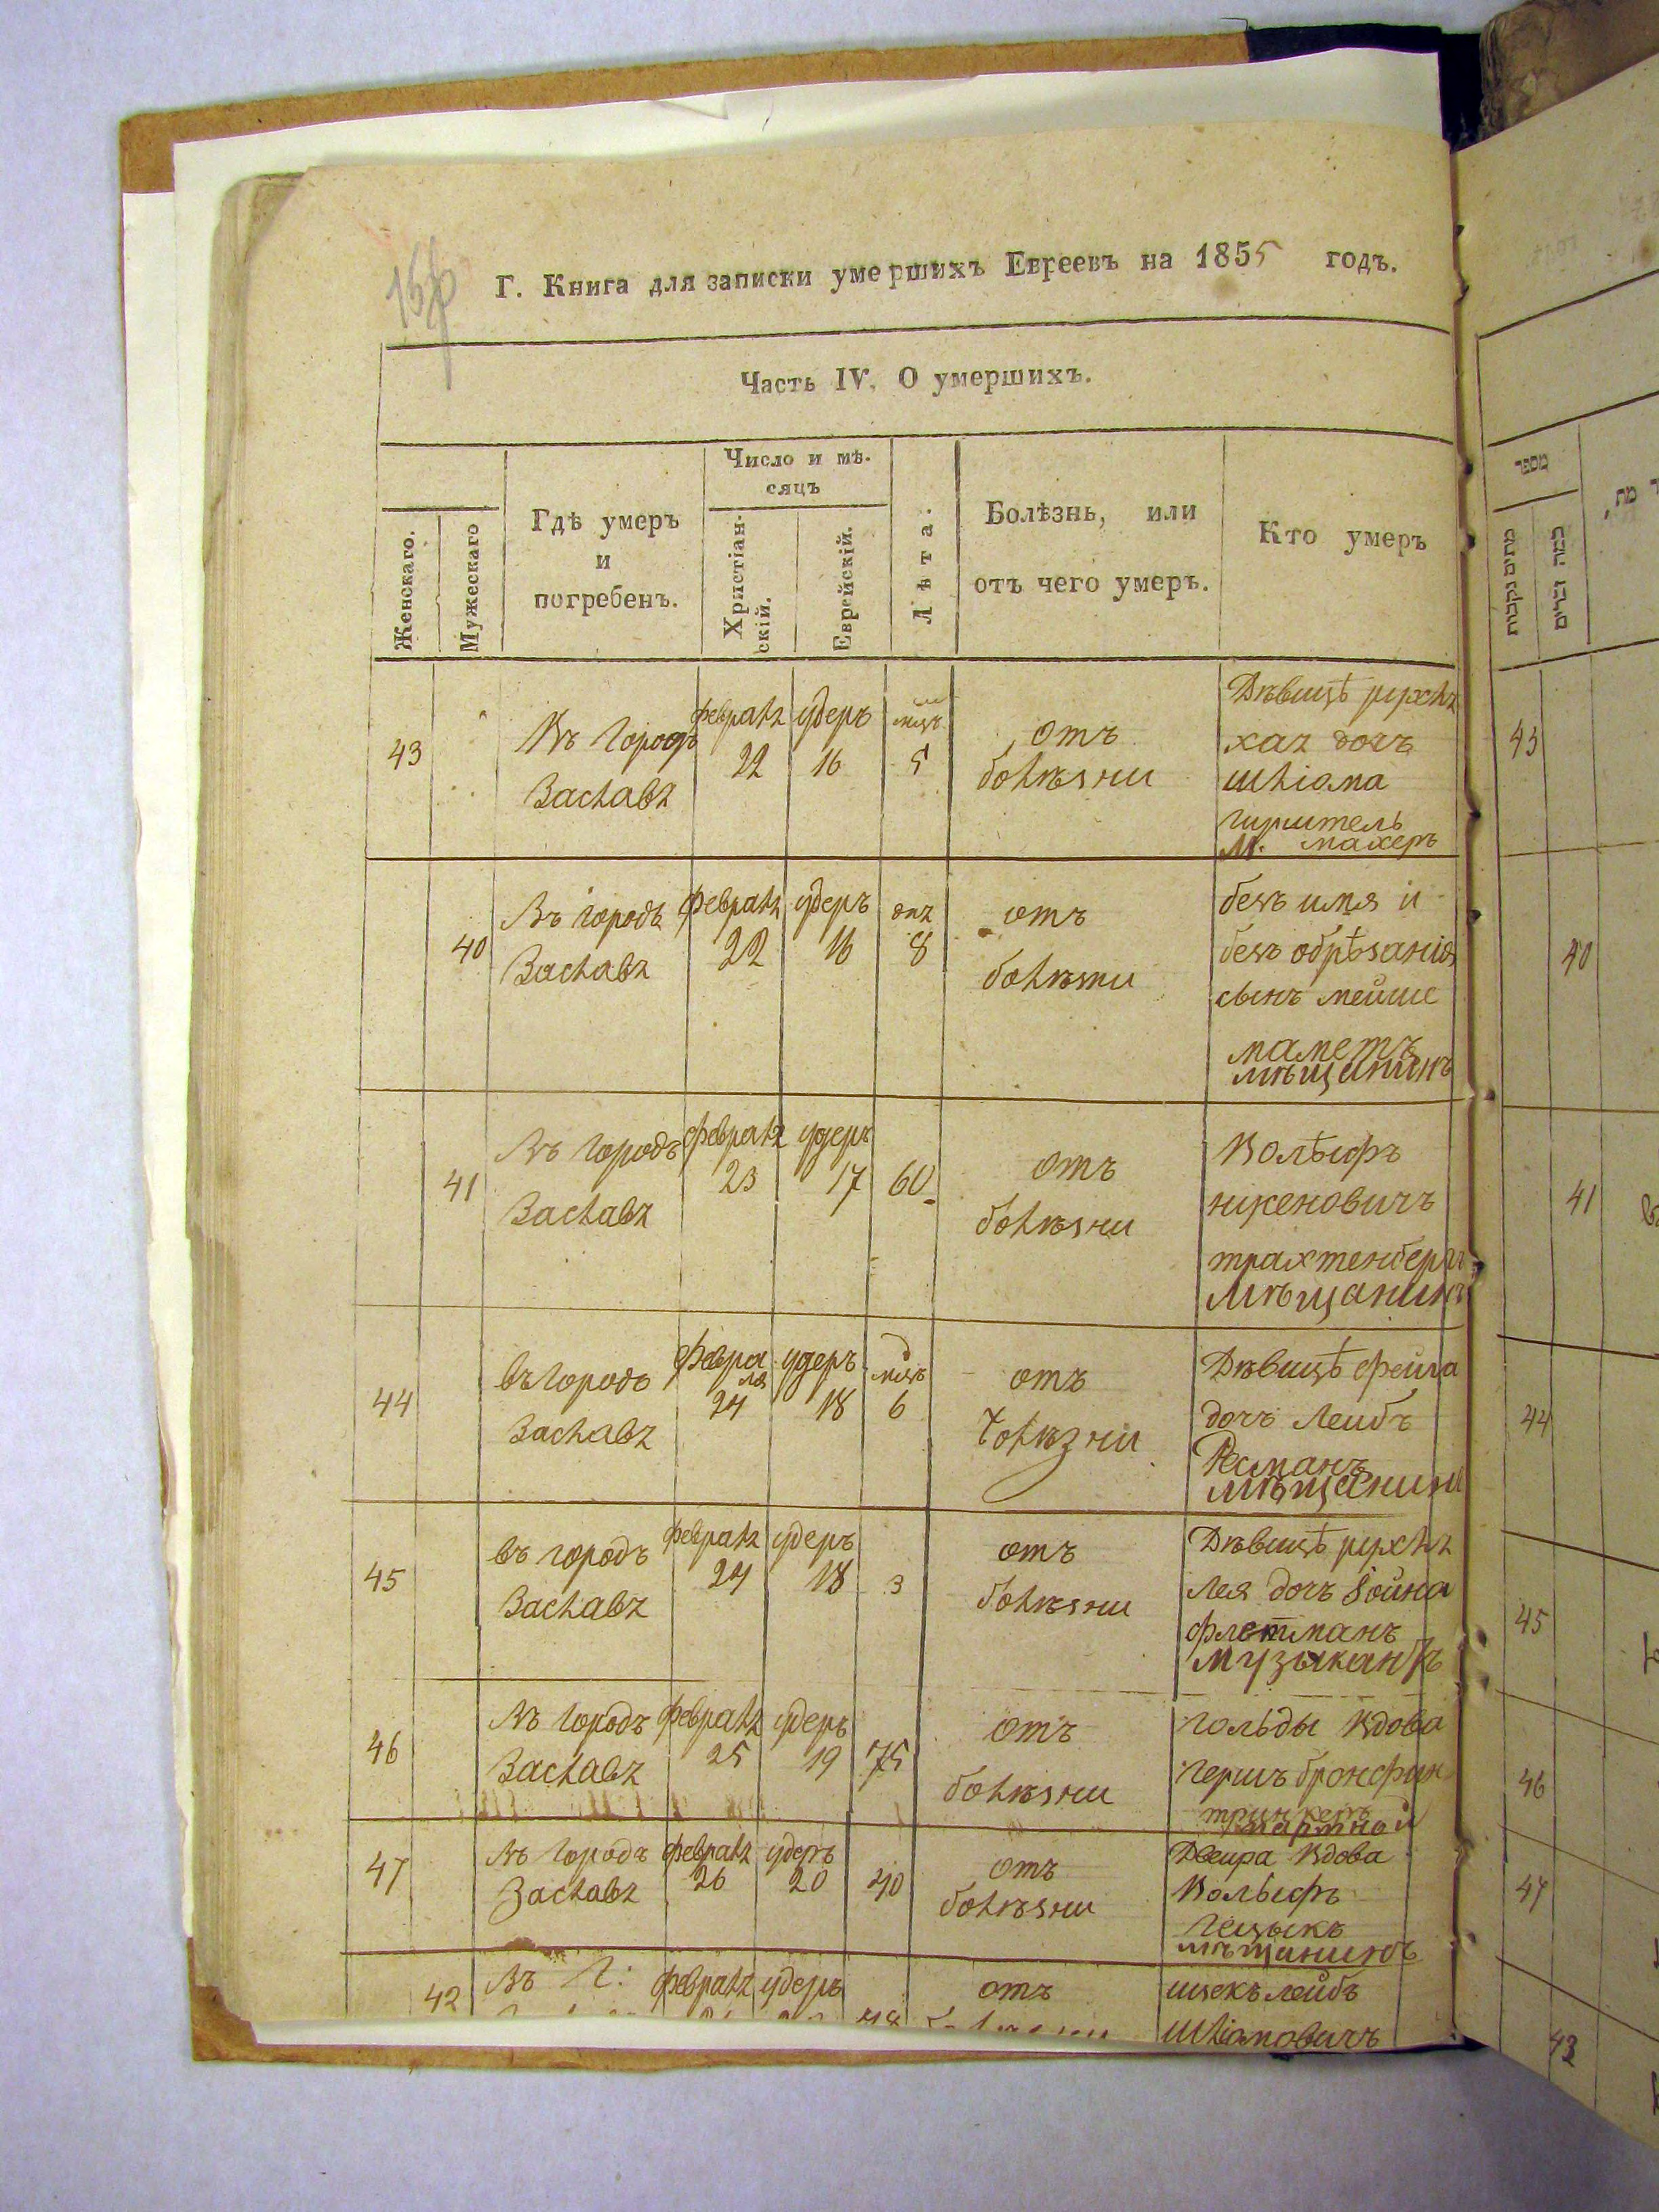 Г. Книга для записки умершихъ Евреевъ на 1855 годъ.
Часть IV. О умершихъ.
Женскаго.
Мужескаго
Гдѣ умеръ
и
погребенъ.
Число и мѣ-
сяцъ
Христіан-
скій.
Еврейскій.
Лѣта.
Болѣзнь, или
отъ чего умеръ.
Кто умеръ
מספר
43
Въ Городѣ
Заславѣ
февраля
22
удеръ
16
5
отъ
болѣзни
Дѣвицѣ рухля
хая дочъ
шліома
М. махеръ
43
40
Въ городѣ
Заславѣ
февраля
22
удеръ
16
8
отъ
болѣзни
безъ имя и
безъ обрѣзанія
сынъ мейше
маметъ
мѣщанинъ
40
41
Въ городѣ
Заславѣ
февраля
23
удеръ
17
60
отъ
болѣзни
Вольфъ
трахтенбергъ
мѣщанинъ
41
44
въ городѣ
Заславѣ
февра
ля
24
удеръ
18
6
отъ
болѣзни
Дѣвицѣ фейга
дочъ Лейбъ
мѣщанинъ
44
45
въ городѣ
Заславѣ
февраля
24
удеръ
18
3
отъ
болѣзни
Дѣвицѣ рухля
Лея дочъ
флетманъ
музыкантъ
45
46
Въ городѣ
Заславѣ
февраля
25
удеръ
19
75
отъ
болѣзни
гольды Вдова
гершъ бронфин
46
47
Въ городѣ
Заславѣ
февраля
26
удеръ
20
40
отъ
болѣзни
Двейра Вдова
Вольфъ
мѣщанинъ
47
42
Въ Г:
февраля
удеръ
отъ
лейбъ
шліомовичъ
42